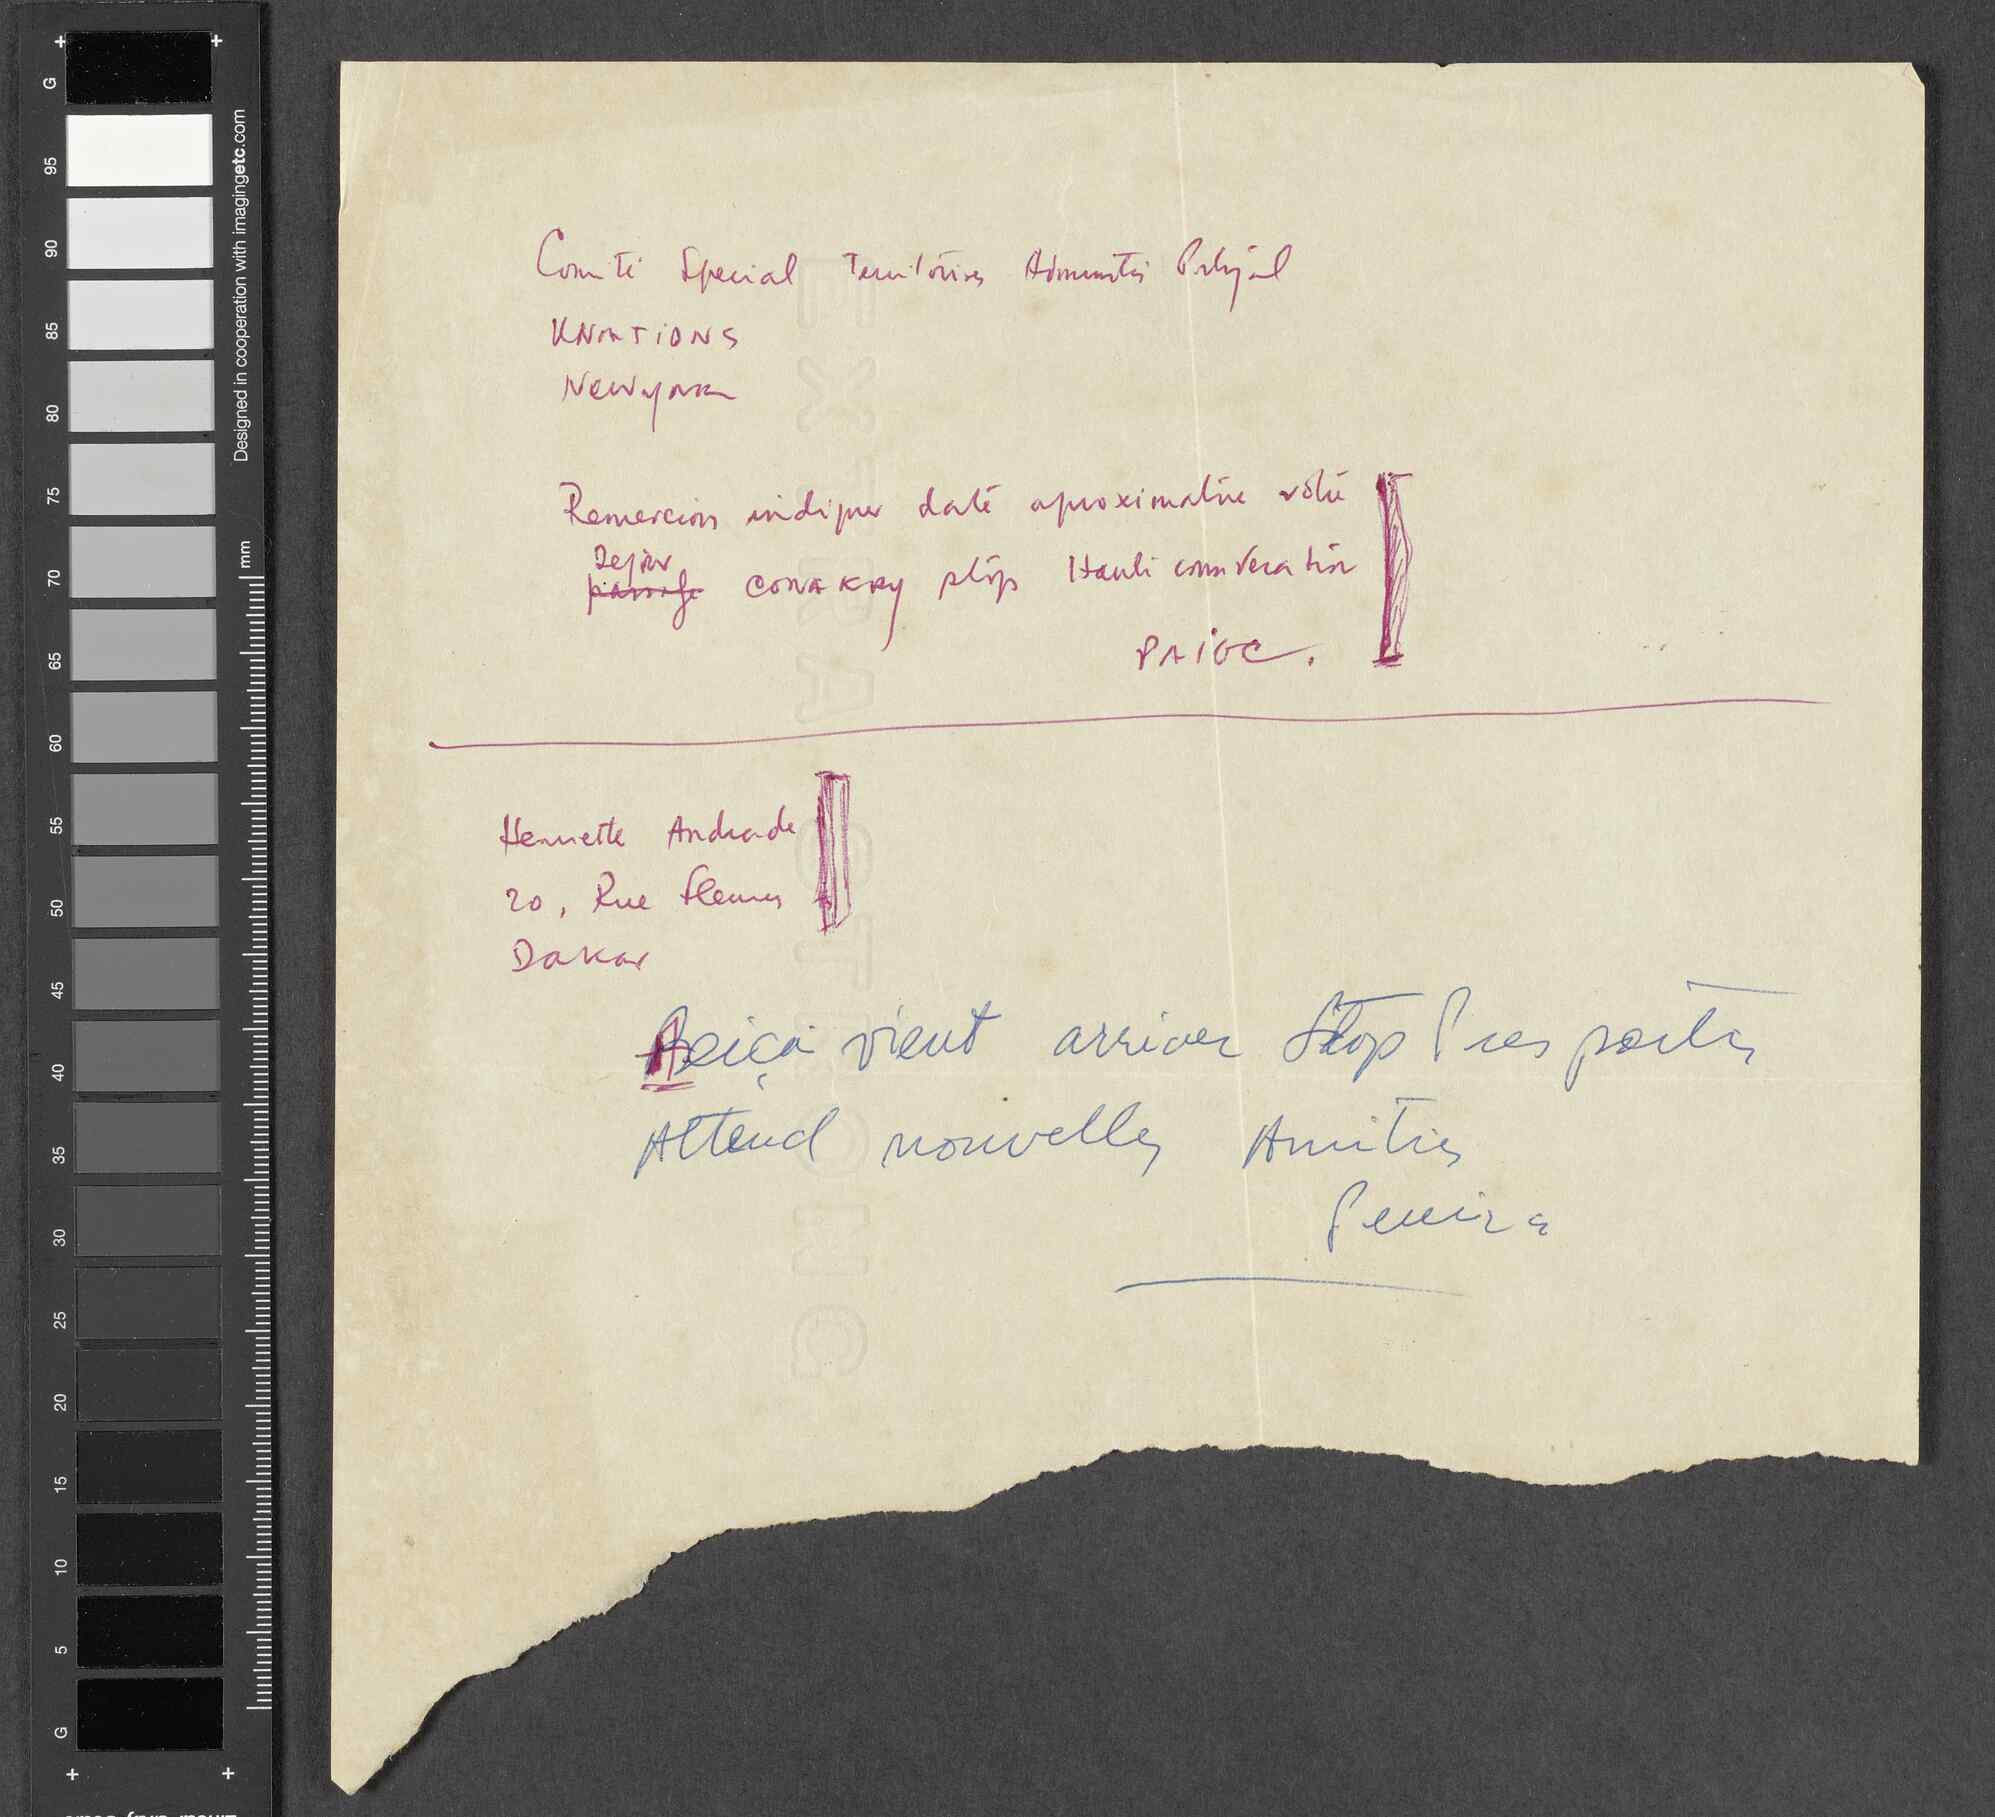 Comité Special Territoires Administrés Portugal
UNATIONS
Newyork
Remercions indiquer daté aproximative vôtre
Sejour
passage CONAKRY stop Haute consideration
PAIGC.
Henriette Andrade
20, Rue Fleurus
Dakar
vient arriver Stop Pres partir
Attend nouvelles Amitiés
Pereira
EXTRA STRONG
Designed in cooperation with imagingetc.com
mm
G 95 90 85 80 75 70 65 60 55 50 45 40 35 30 25 20 15 10 5 G